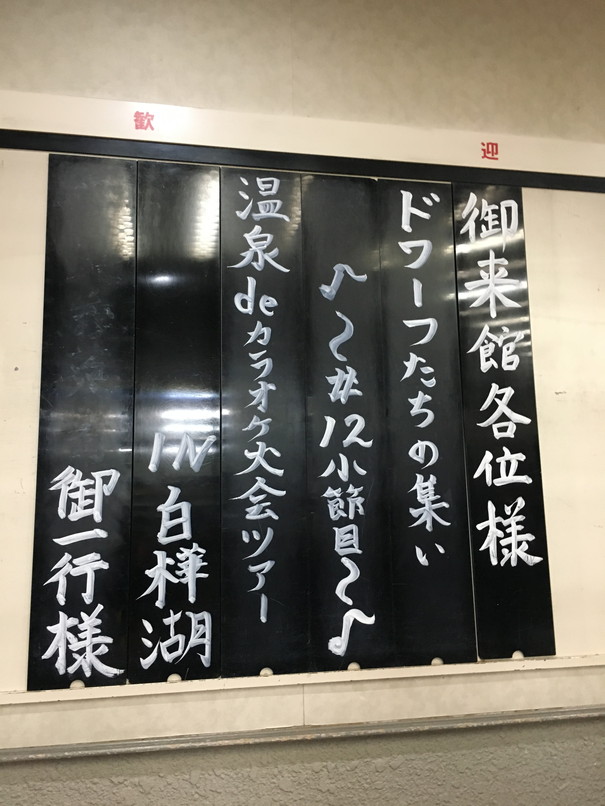 歓迎
御来館各位様
ドワーフたちの集い
♪〜#12小節目〜♪
温泉deカラオケ大会ツアー
IN白樺湖
御一行様